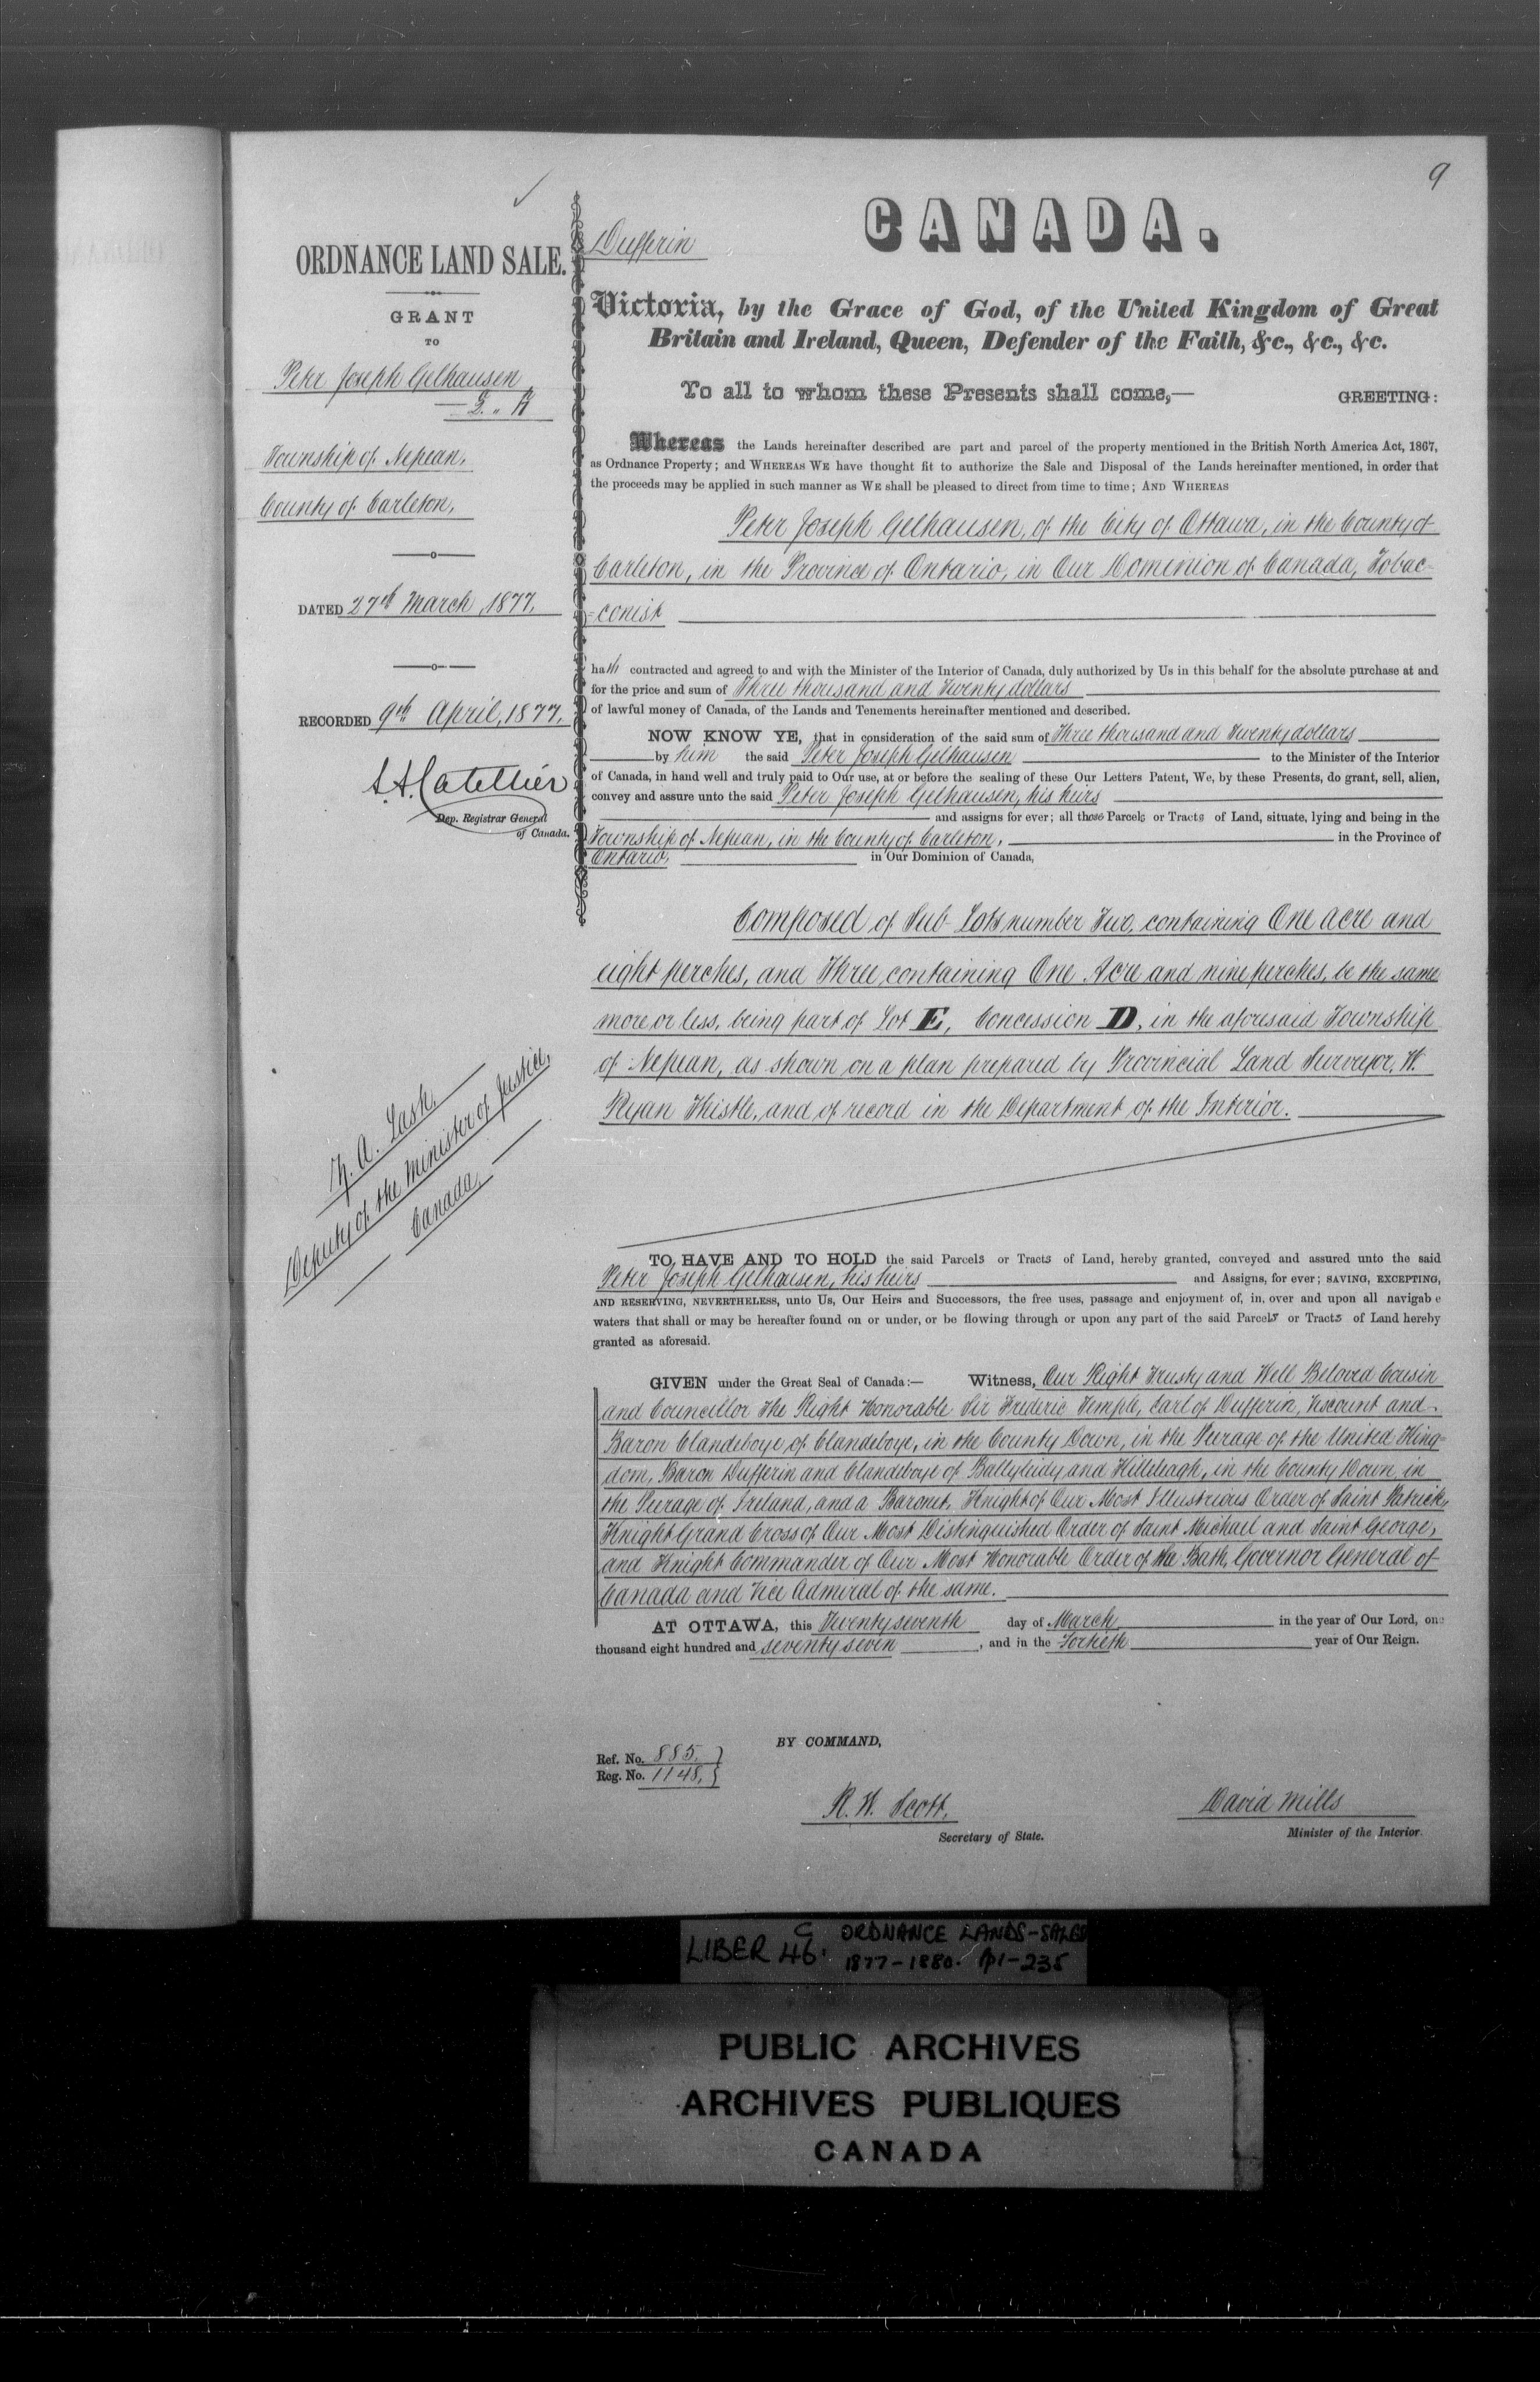 9
CANADA.
Dufferin
ORDNANCE LAND SALE.
GRANT
TO
Peter Joseph Gelhausen
Township of Nepean,
County of Carleton,
DATED 27th March, 1877.
RECORDED 9th April, 1877.
L.A. Catellier
Dep. Registrar General
of Canada.
Z. A. Lash,
Deputy of the Minister of Justice,
Canada,
Victoria, by the Grace of God, of the United Kingdom of Great
Britain and Ireland, Queen, Defender of the Faith, &c., &c., &c.
To all to whom these Presents shall come,— GREETING:
Whereas the Lands hereinafter described are part and parcel of the property mentioned in the British North America Act, 1867,
as Ordnance Property; and WHEREAS WE have thought fit to authorize the Sale and Disposal of the Lands hereinafter mentioned, in order that
the proceeds may be applied in such manner as WE shall be pleased to direct from time to time; AND WHEREAS
Peter Joseph Gelhausen, of the City of Ottawa, in the County of
Carleton, in the Province of Ontario, in Our Dominion of Canada, Tobac-
=conist
hath contracted and agreed to and with the Minister of the Interior of Canada, duly authorized by Us in this behalf for the absolute purchase at and
for the price and sum of Three thousand and Twenty dollars
of lawful money of Canada, of the Lands and Tenements hereinafter mentioned and described.
NOW KNOW YE, that in consideration of the said sum of Three thousand and Twenty dollars
by him the said Peter Joseph Gelhausen to the Minister of the Interior
of Canada, in hand well and truly paid to Our use, at or before the sealing of these Our Letters Patent, We, by these Presents, do grant, sell, alien,
convey and assure unto the said Peter Joseph Gelhausen, his heirs
and assigns for ever; all those Parcels or Tracts of Land, situate, lying and being in the
Township of Nepean, in the County of Carleton, in the Province of
Ontario, in Our Dominion of Canada,
Composed of Sub Lots number Two, containing One acre and
eight perches, and Three containing One Acre and nine perches, be the same
more or less, being part of Lot E, Concession D, in the aforesaid Township
of Nepean, as shown on a plan prepared by Provincial Land Surveyor, W.
Ryan Thistle, and of record in the Department of the Interior.
TO HAVE AND TO HOLD the said Parcels or Tracts of Land, hereby granted, conveyed and assured unto the said
Peter Joseph Gelhausen, his heirs and Assigns, for ever; SAVING, EXCEPTING,
AND RESERVING, NEVERTHELESS, unto Us, Our Heirs and Successors, the free uses, passage and enjoyment of, in, over and upon all navigab e
waters that shall or may be hereafter found on or under, or be flowing through or upon any part of the said Parcels or Tracts of Land hereby
granted as aforesaid.
GIVEN under the Great Seal of Canada:— Witness, Our Right Trusty and Well Beloved Cousin
and Councillor The Right Honorable Sir Frederic Temple, Earl of Dufferin, Viscount and
Baron Clandeboye of Clandeboye, in the County Down, in the Peerage of the United King=
dom, Baron Dufferin and Clandeboye of Ballyleidy and Killeleagh, in the County Down in
the Peerage of Ireland, and a Baronet, Knight of Our Most Illustrious Order of Saint Patrick,
Knight Grand Cross of Our Most Distinguished Order of Saint Michael and Saint George,
and Knight Commander of Our Most Honorable Order of the Bath, Governor General of
Canada and Vice Admiral of the same.
AT OTTAWA, this Twenty seventh day of March in the year of Our Lord, one
thousand eight hundred and seventy seven, and in the Fortieth year of Our Reign.
BY COMMAND,
Ref. No. 885.
Reg. No. 1148.
R. W. Scott,
Secretary of State.
David Mills
Minister of the Interior.
LIBER 46. C ORDNANCE LANDS-SALES
1877-1880. pp1-235
PUBLIC ARCHIVES
ARCHIVES PUBLIQUES
CANADA